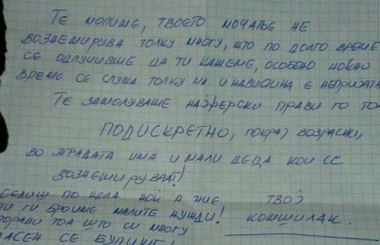 ТЕ МОЛИМЕ, ТВОЕТО МОЧАЊЕ НЕ
ВОЗНЕМИРУВА ТОЛКУ МНОГУ, ШТО ПО ДОЛГО ВРЕМЕ
СЕ ОДЛУЧИВМЕ ДА ТИ КАЖЕМЕ, ОСОБЕНО НОЌНО
ВРЕМЕ СЕ СЛУША ТОЛКУ И НАВИСТИНА Е
ТЕ ЗАМОЛУВАМЕ НАЈФЕРСКИ ПРАВИ ГО ТОА
ПОДИСКРЕТНО, ПОКРАЈ ВОЗРАСНИ,
ВО ЗГРАДАТА ИМА И МАЛИ ДЕЦА КОИ СЕ
ВОЗНЕМИРУВААТ!
СЕДИШ ПО ЦЕЛА НОЌ А НИЕ ТВОЈ
ТИ ГИ БРОИМЕ МАЛИТЕ НУЖДИ! КОМШИЛАК.
ПОРАДИ ТОА ШТО СИ МНОГУ
ЛАСЕН СЕ БУДИМЕ!